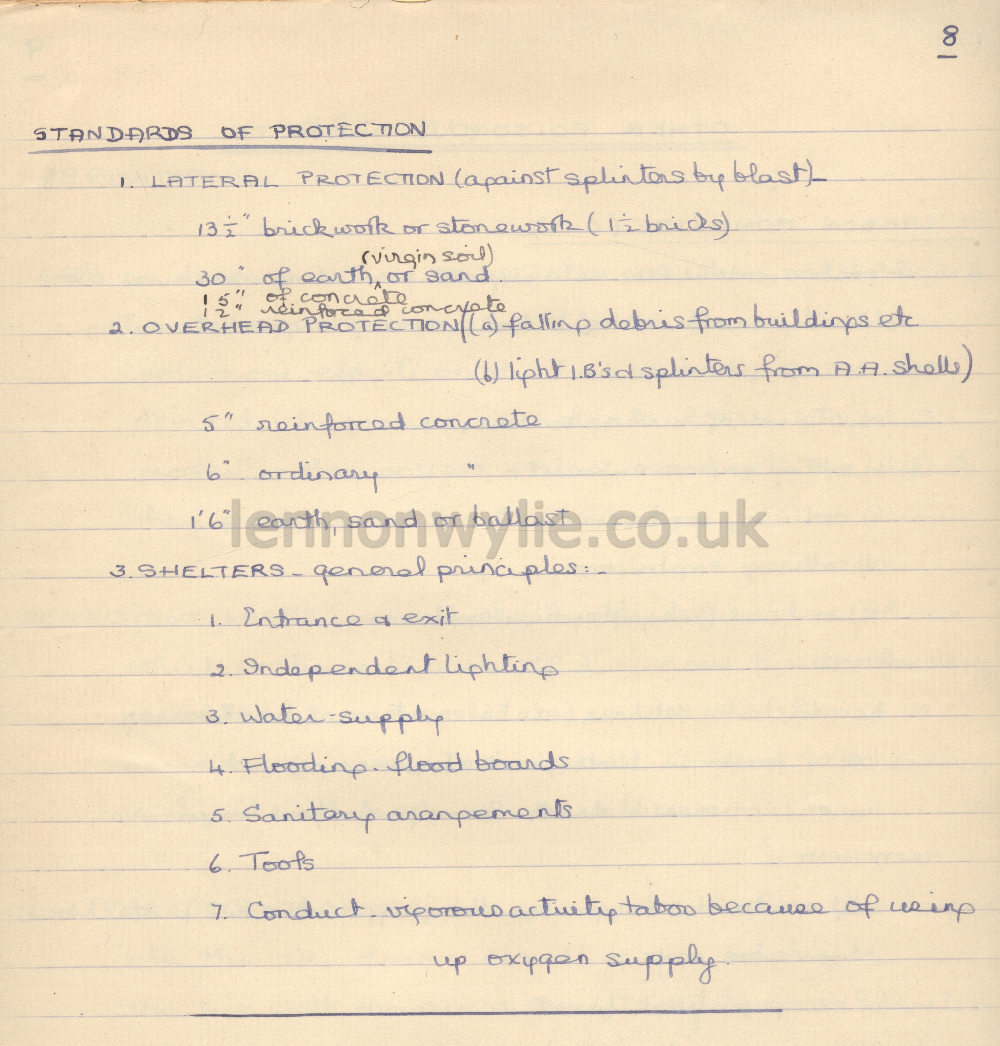 8
STANDARDS OF PROTECTION
1. LATERAL PROTECTION (against splinters by blast)-
13½" brickwork or stonework (1½ bricks)
(virgin soil)
30" of earth, or sand
15" of concrete
12" reinforced concrete
2. OVERHEAD PROTECTION ((a) falling debris from buildings etc
(b) light I.B's & splinters from A.A. shells)
5" reinforced concrete
6" ordinary "
1'6" earth, sand or ballast
lennonwylie.co.uk
3. SHELTERS - general principles:-
1. Entrance & exit
2. Independent lighting
3. Water-supply
4. Flooding. flood boards
5. Sanitary arangements
6. Tools
7. Conduct. vigorous activity taboo because of using
up oxygen supply.